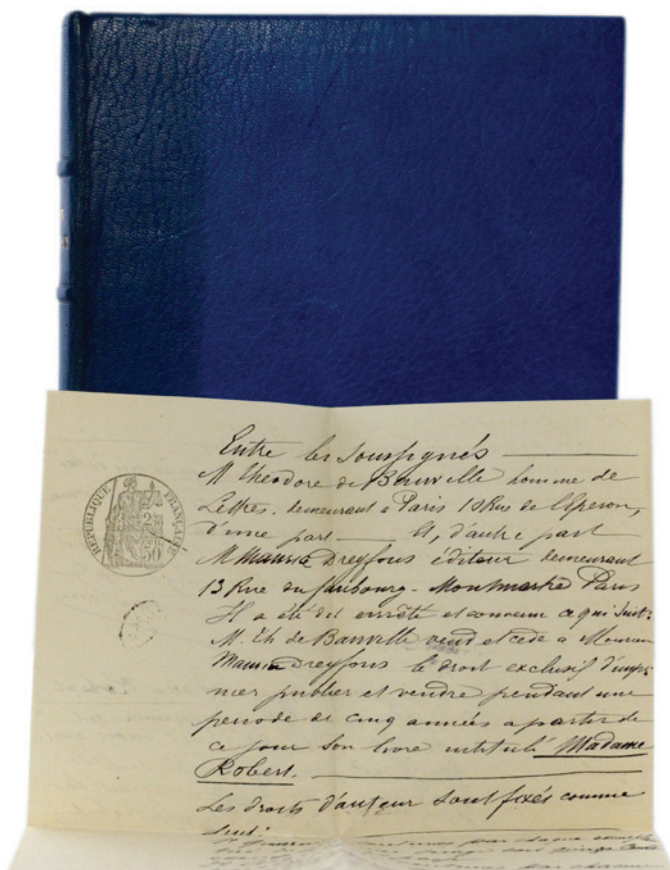 Entre les Soussignés
M Théodore de Banville homme de
Lettres. demeurant à Paris 10 Rue de l'Eperon,
d'une part. Et, d'autre part
M Maurice Dreyfous éditeur demeurant
13 Rue du faubourg-Montmartre Paris
Il a été dit arrêté et convenu ce qui suit:
M. Th de Banville vend et cède a Monsieur
Maurice Dreyfous le droit exclusif d'impri
mer publier et vendre pendant une
periode de cinq années a partir de
ce jour son livre intitulé Madame
Robert.
Les droits d'auteur sont fixés comme
suit:
par chaque
REPUBLIQUE FRANÇAISE
2F
50